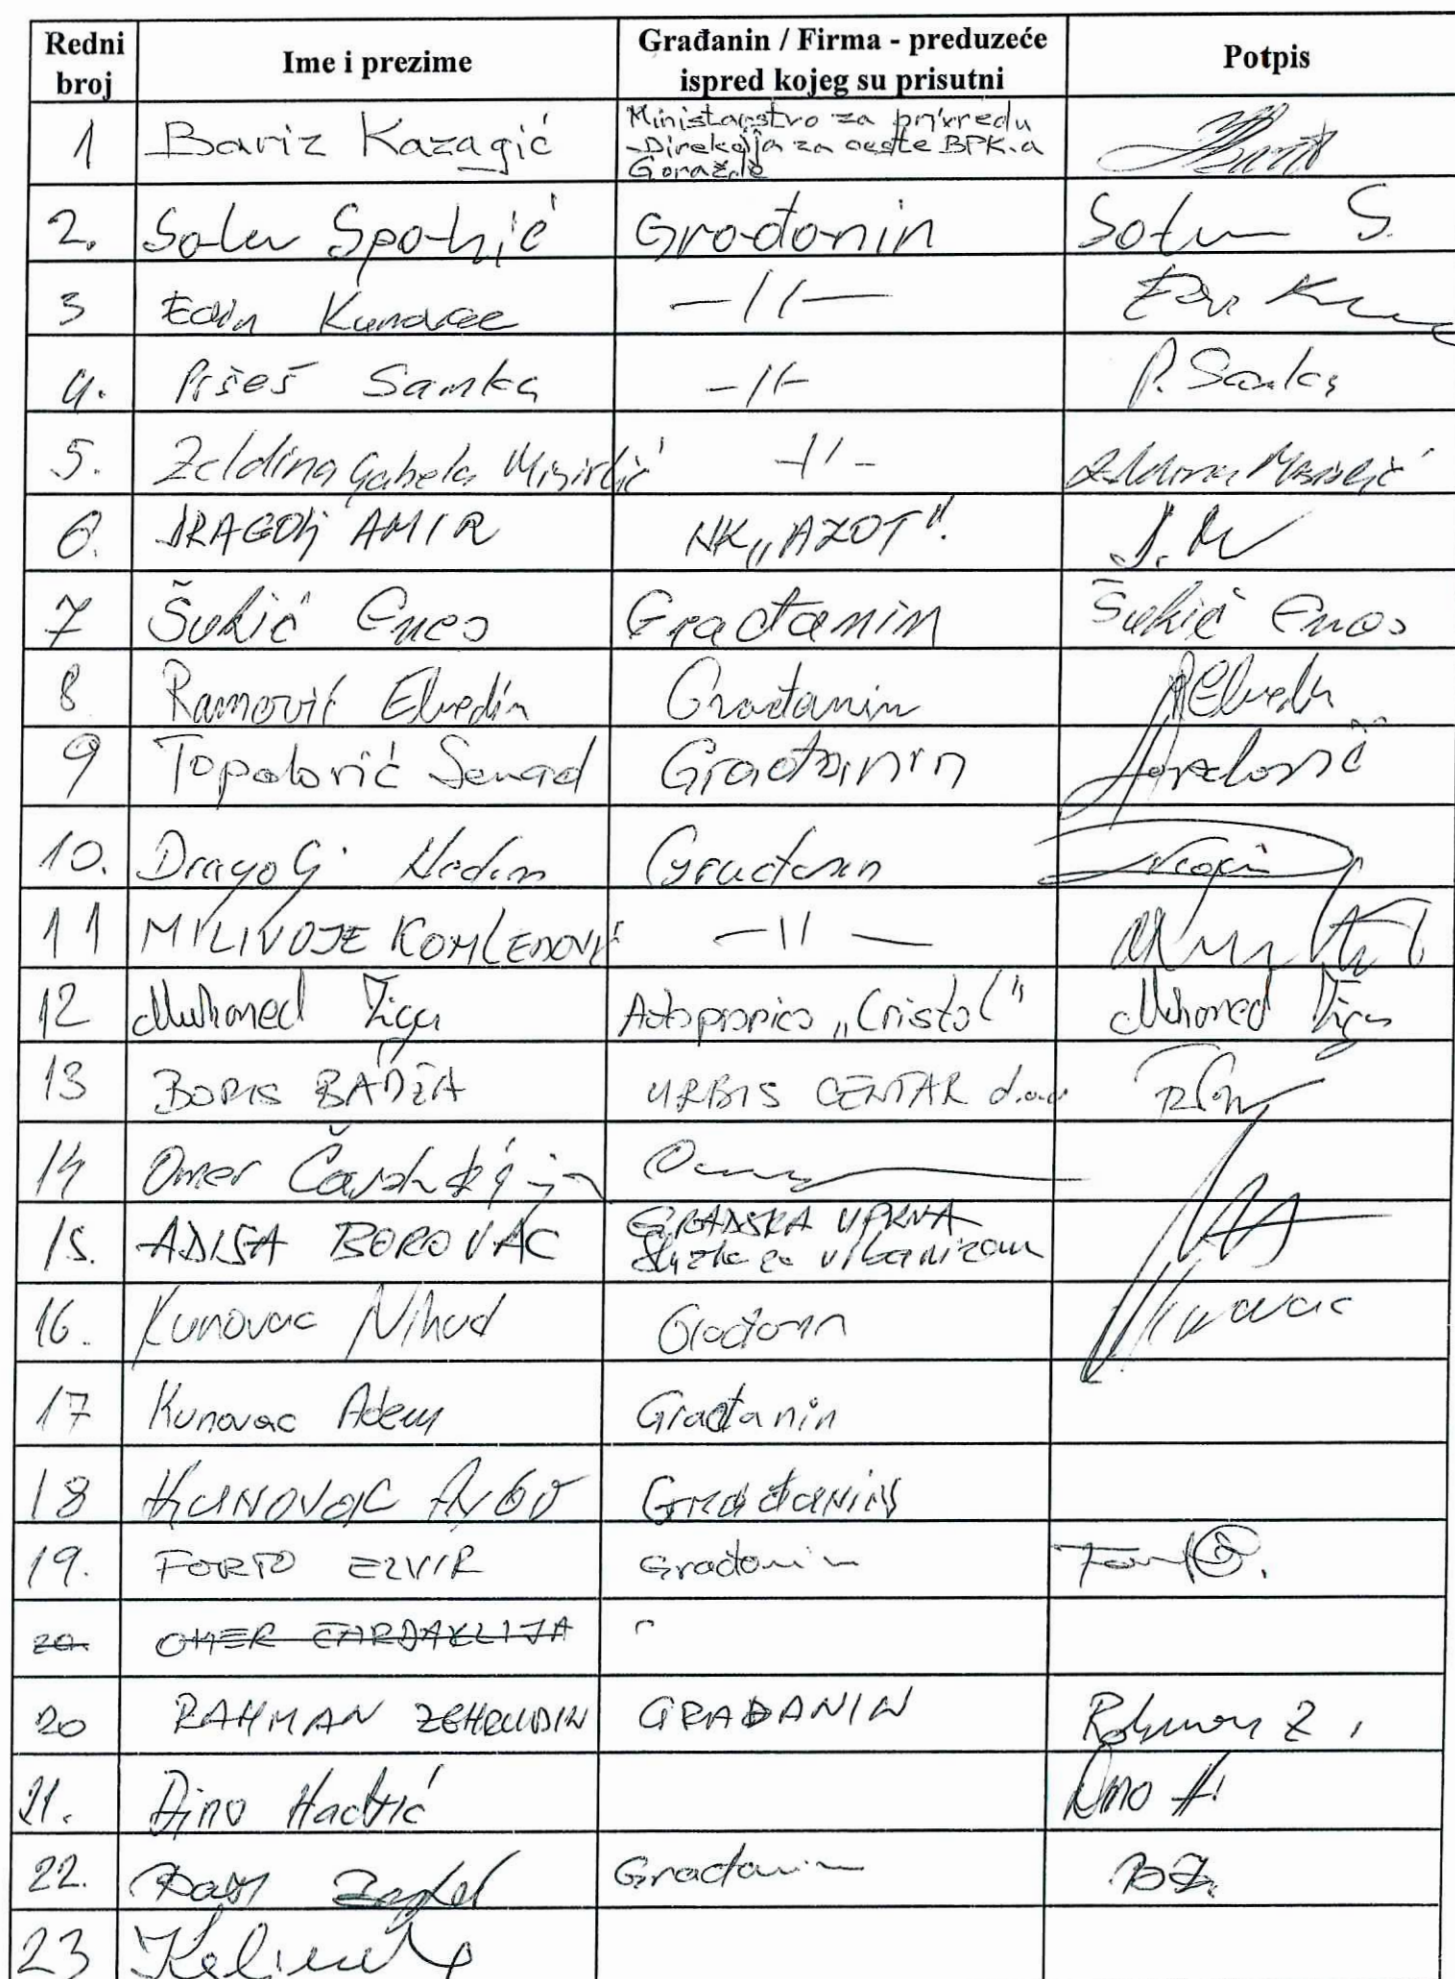 Redni broj | Ime i prezime | Građanin / Firma - preduzeće ispred kojeg su prisutni | Potpis
1 Bariz Kazagić Ministarstvo za privredu
-Direkcija za ceste BPK-a
Goražde
2. Spahić Građanin S.
3 Edin Kunovac —//—
4. Pršeš Samka -//- P. Samka
5. Zeldina Gabela Misirlić -//-
6. DRAGOLJ AMIR NK „AZOT".
7 Šukić Enes Građanin Šukić Enes
8 Ramović Elvedin Građanin
9 Topalović Senad Građanin Topalović
10. Dragolj Nedim Građanin
11 MILIVOJE KOMLENOVIĆ —//—
12 Muhamed Žiga Autopraonica „Cristal" Muhamed Žiga
13 BORIS BADŽA URBIS CENTAR d.o.o
14 Omer Čardaklija
15. ADISA BOROVAC GRADSKA UPRVA
Služba za urbanizam
16. Kunovac Nihad Građanin Kunovac
17 Kunovac Adem Građanin
18 KUNOVAC Građanin
19. FORTO ELVIR Građanin
20. OMER ČARDAKLIJA
20 RAHMAN ZEHRUDIN GRAĐANIN Rahman Z.
21. Dino Hadžić Dino H.
22. Građanin
23